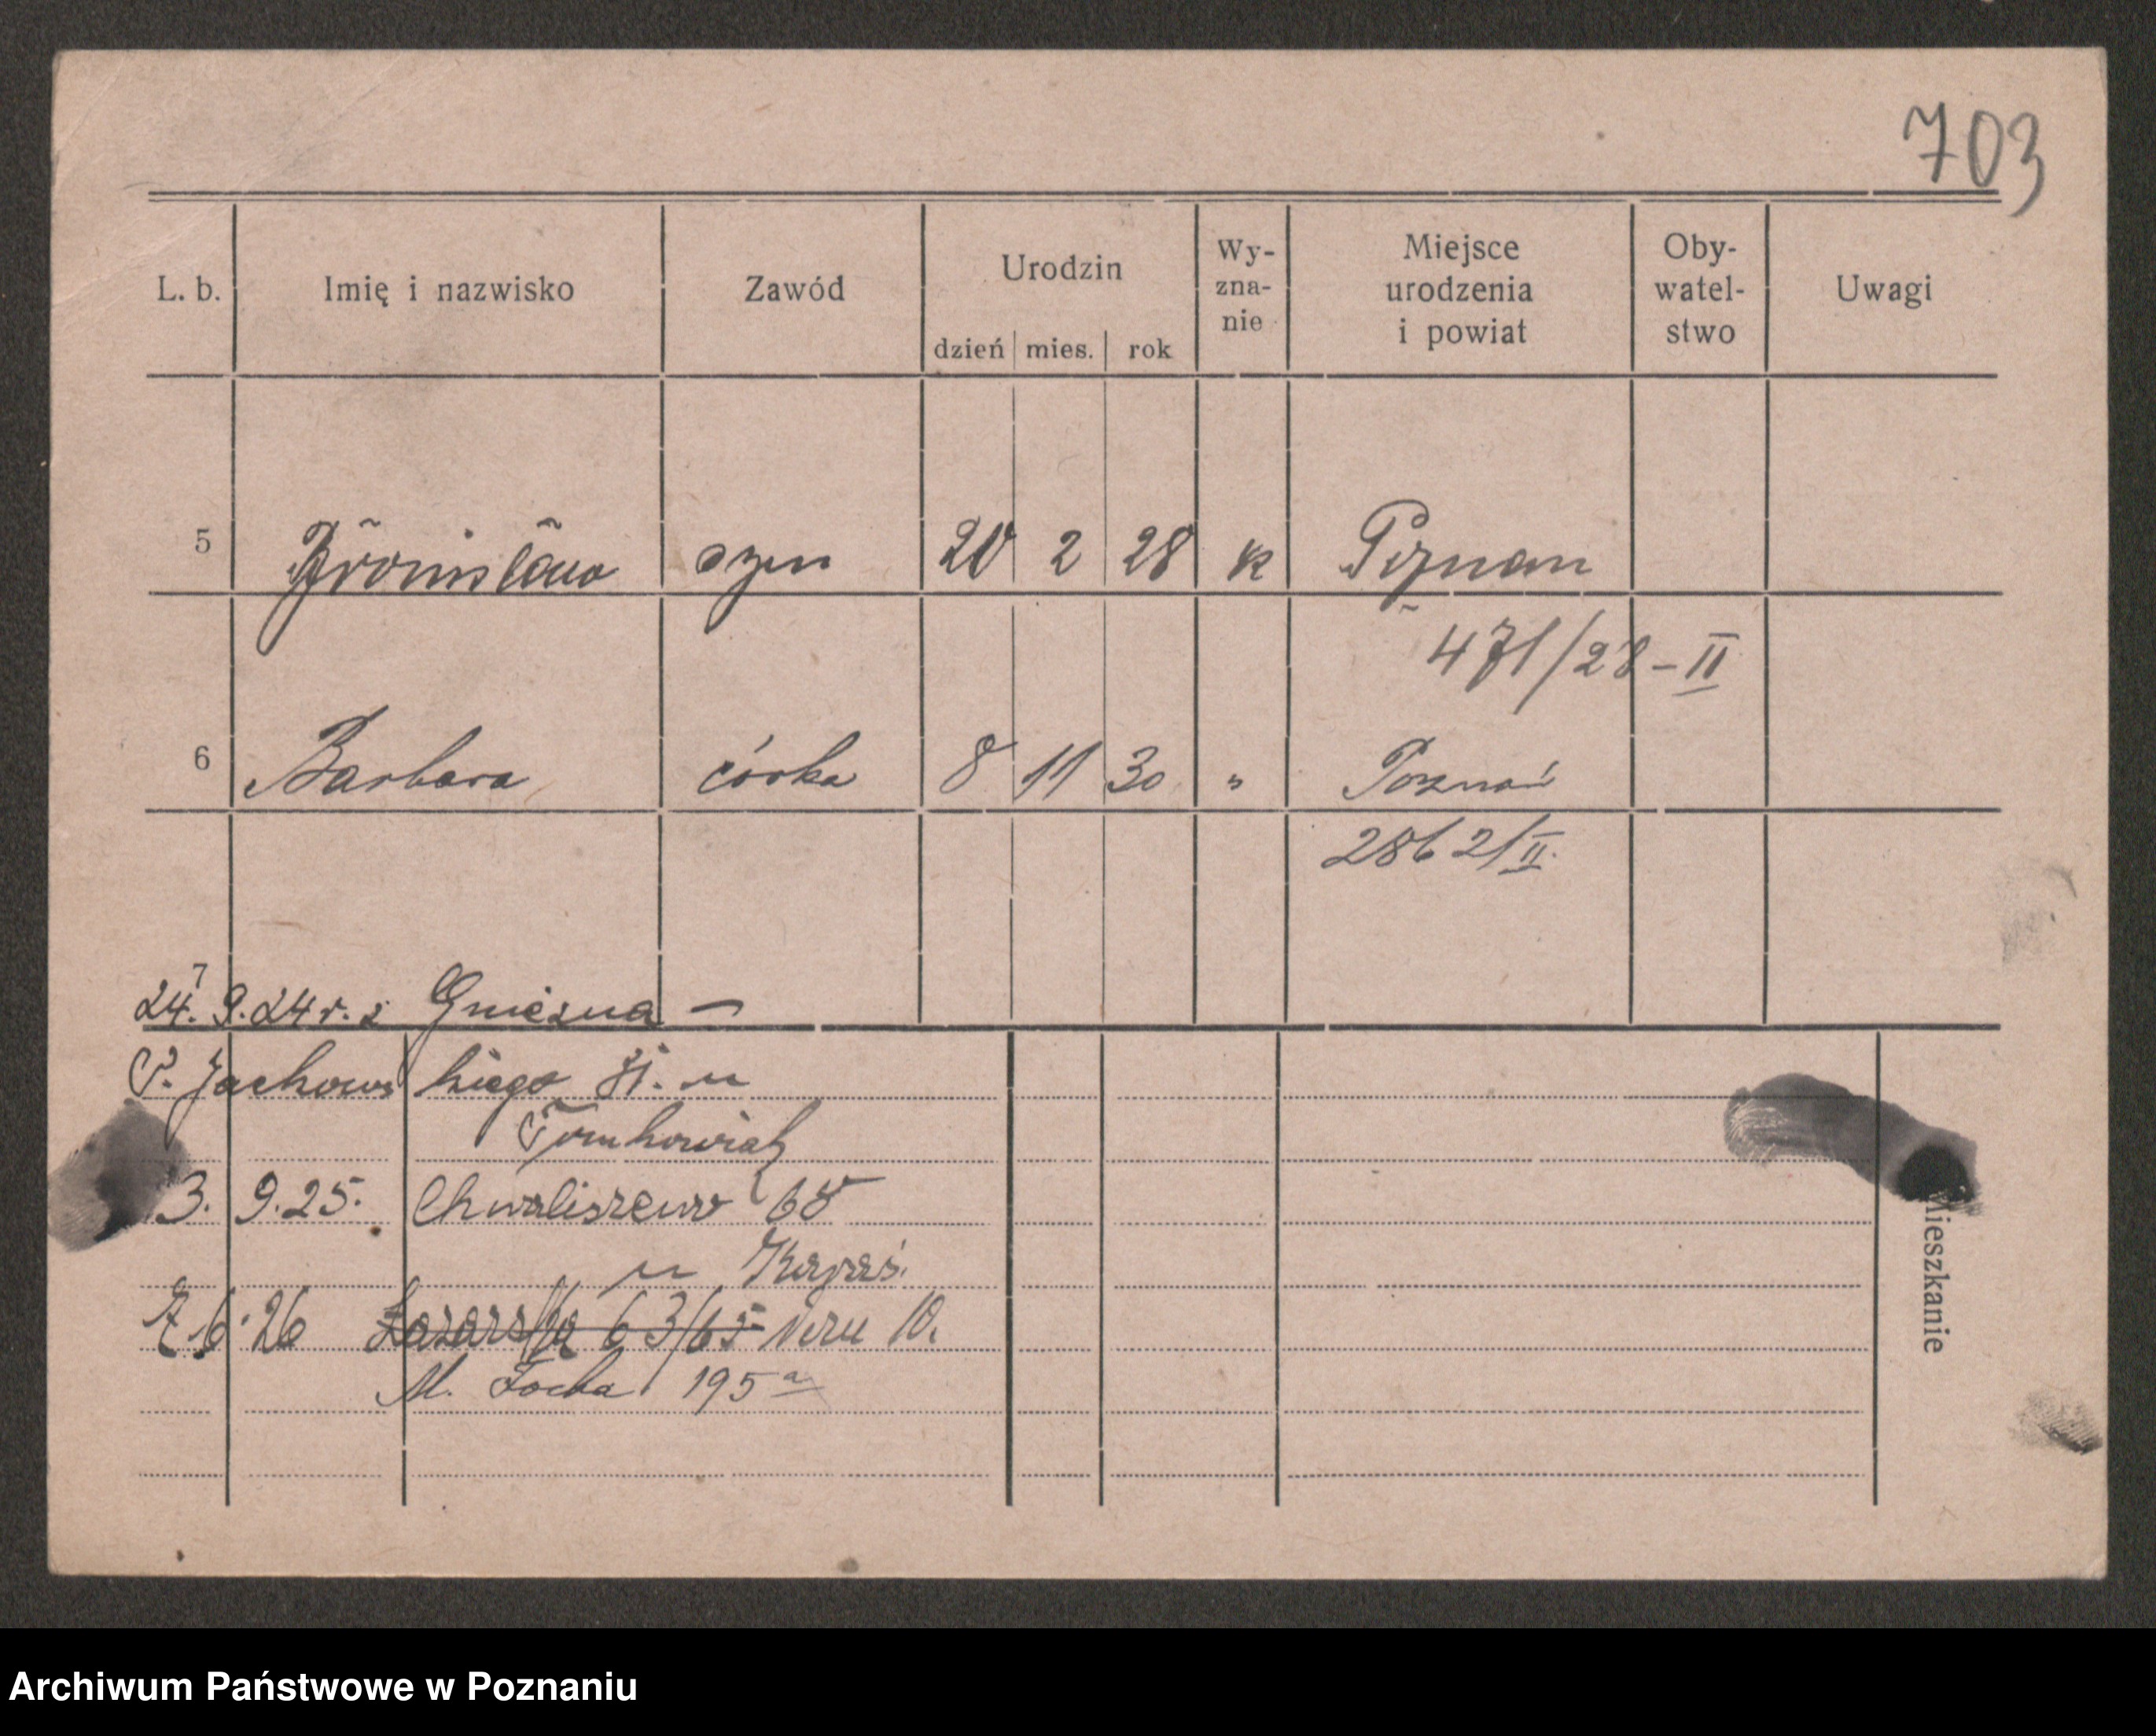 703
L. b. Imię i nazwisko Zawód Urodzin dzień mies. rok Wy-zna-nie Miejsce urodzenia i powiat Oby-watel-stwo Uwagi
5 Bronisława 20 2 28 k Poznań
471/28-II
6 Barbara córka 8 11 30 " Poznań
2862/II.
7
24. 9. 24 r. z Gniezna –
P. Jackowskiego 31. u
Tomkowiak
3. 9. 25. Chwaliszewo 68
u
7.6.26 Łazarska 63/65 10.
M. Focha 195 a
Mieszkanie
Archiwum Państwowe w Poznaniu